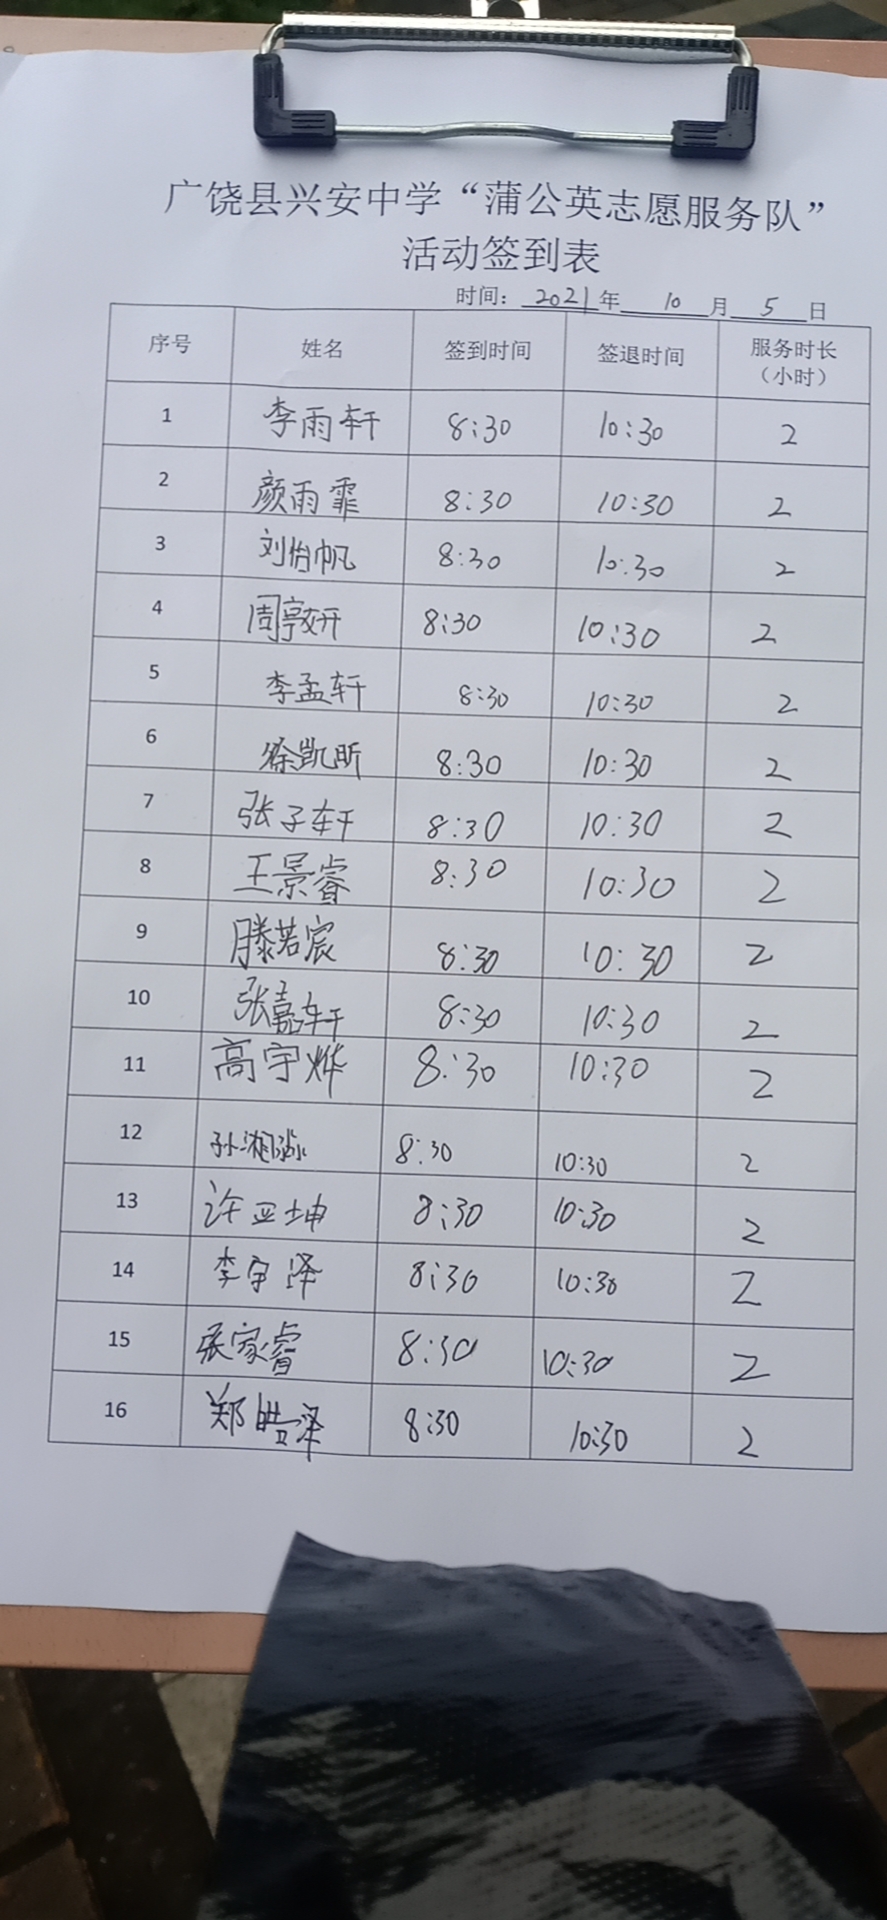 广饶县兴安中学“蒲公英志愿服务队”
活动签到表
时间：2021年 10 月 5 日
序号 姓名 签到时间 签退时间 服务时长（小时）
1 李雨轩 8:30 10:30 2
2 颜雨霏 8:30 10:30 2
3 刘怡帆 8:30 10:30 2
4 8:30 10:30 2
5 李孟轩 8:30 10:30 2
6 徐凯昕 8:30 10:30 2
7 张子轩 8:30 10:30 2
8 王景睿 8:30 10:30 2
9 滕若宸 8:30 10:30 2
10 张嘉轩 8:30 10:30 2
11 高宇烨 8:30 10:30 2
12 8:30 10:30 2
13 许亚坤 8:30 10:30 2
14 李宇泽 8:30 10:30 2
15 张家睿 8:30 10:30 2
16 郑皓泽 8:30 10:30 2